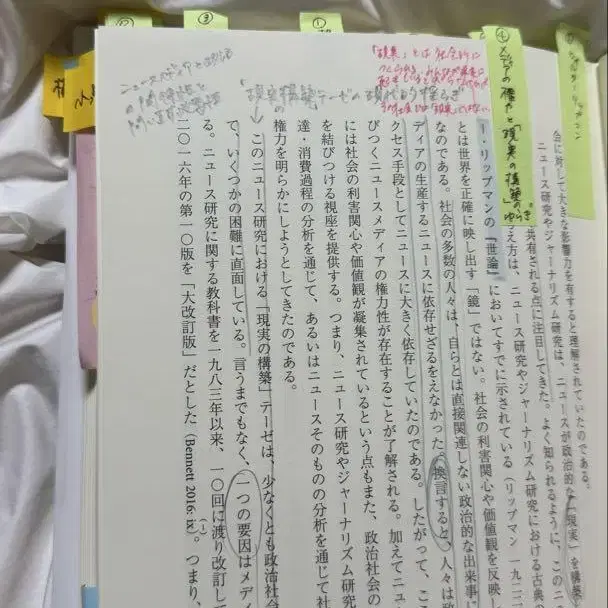 ④メディアの権力と「現実の構築」のゆらぎ
会に対して大きな影響力を有すると理解されていた。
ニュース研究やジャーナリズム研究は、ニュースが政治的な「現実」を構築
共有される点に注目してきた。よく知られるように、この二
え方は、ニュース研究やジャーナリズム研究における古典
ー・リップマンの『世論』においてすでに示されている（リップマン 一九二
とは世界を正確に映し出す「鏡」ではない。社会の利害関心や価値観を反映し
なのである。社会の多数の人々は、自らとは直接関連しない政治的な出来事に
ディアの生産するニュースに依存せざるをえなかった。換言すると、人々は政
クセス手段としてニュースに大きく依存していたのである。したがって、こ
びつくニュースメディアの権力性が存在することが了解される。加えてニュ
には社会の利害関心や価値観が凝集されているという点もまた、政治社会の
を結びつける視座を提供する。つまり、ニュース研究やジャーナリズム研究
達・消費過程の分析を通じて、あるいはニュースそのものの分析を通して社
権力を明らかにしようとしてきたのである。
このニュース研究における「現実の構築」テーゼは、少なくとも政治社会
て、いくつかの困難に直面している。言うまでもなく、一つの要因はメディ
る。ニュース研究に関する教科書を一九八三年以来、一〇回に渡り改訂して
二〇一六年の第一〇版を「大改訂版」だとした（Bennett 2016: ix）。つまり、